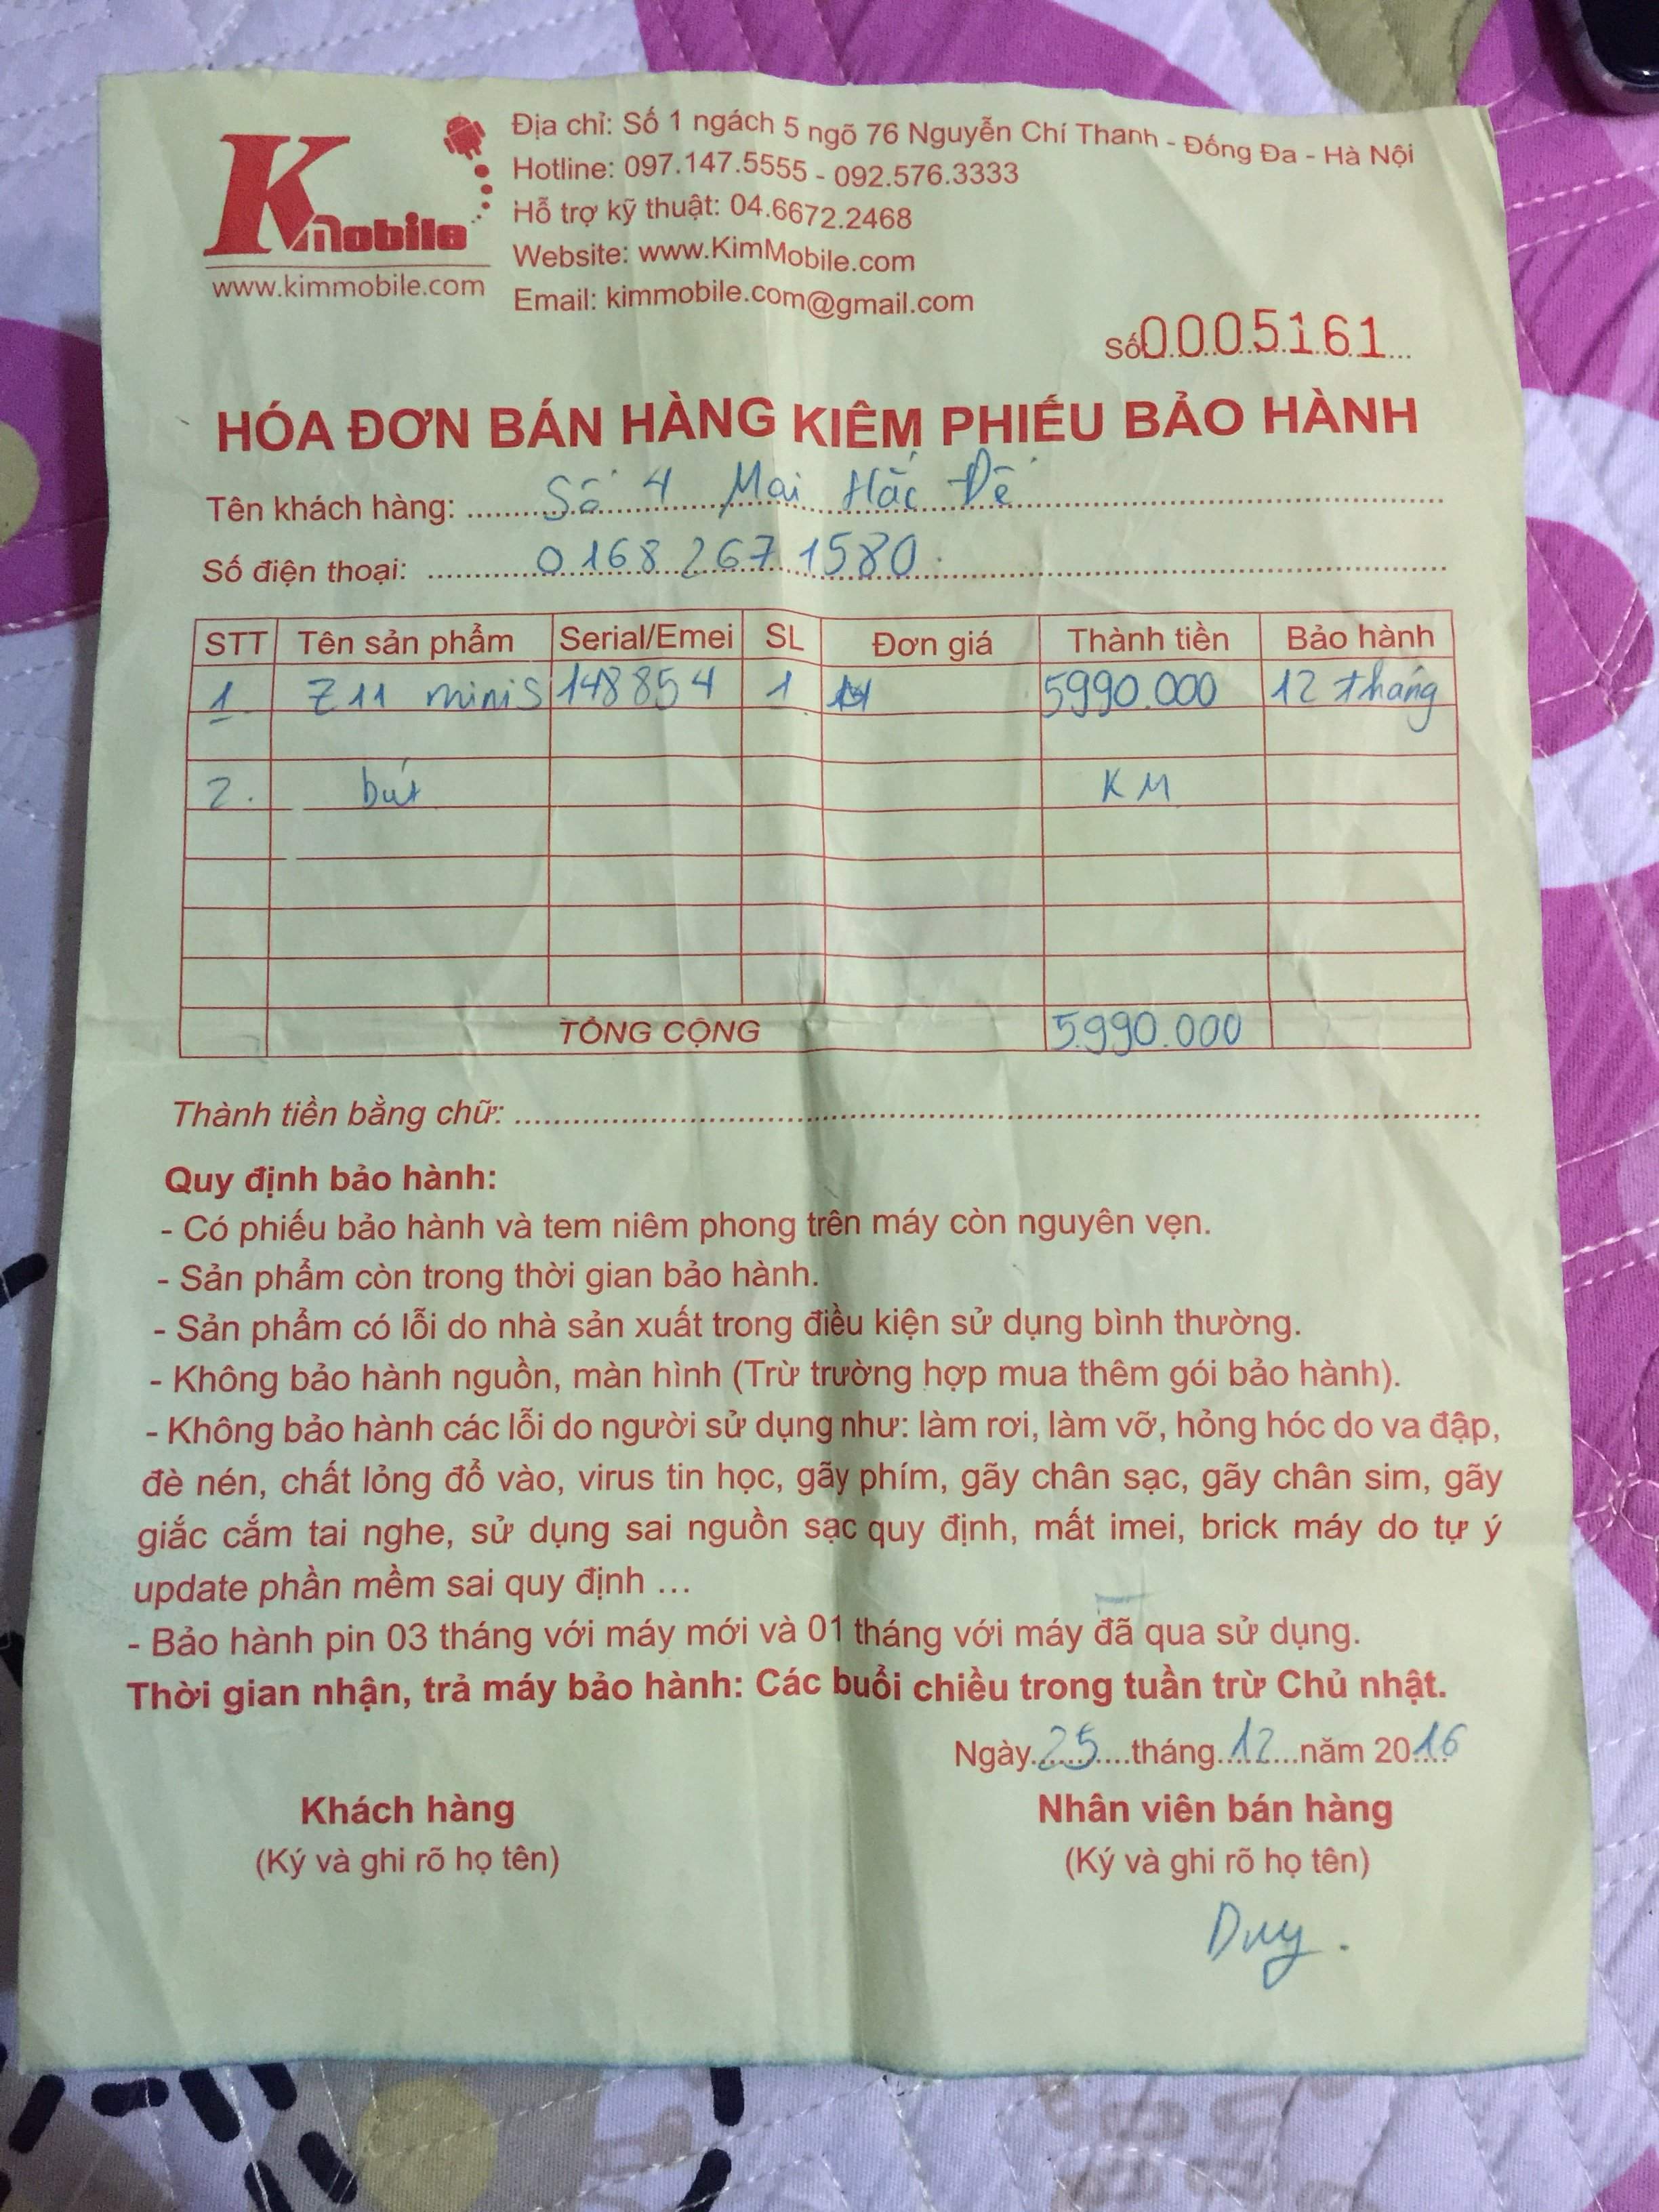 Kmobile
www.kimmobile.com
Địa chỉ: Số 1 ngách 5 ngõ 76 Nguyễn Chí Thanh - Đống Đa - Hà Nội
Hotline: 097.147.5555 - 092.576.3333
Hỗ trợ kỹ thuật: 04.6672.2468
Website: www.KimMobile.com
Email: kimmobile.com@gmail.com
Số 0005161
HÓA ĐƠN BÁN HÀNG KIÊM PHIẾU BẢO HÀNH
Tên khách hàng: Số 4 Mai Hắc Đế
Số điện thoại: 0168 267 1580
STT Tên sản phẩm Serial/Emei SL Đơn giá Thành tiền Bảo hành
1 Z11 miniS 148854 1 5990.000 12 tháng
2. bút KM
TỔNG CỘNG 5.990.000
Thành tiền bằng chữ:
Quy định bảo hành:
- Có phiếu bảo hành và tem niêm phong trên máy còn nguyên vẹn.
- Sản phẩm còn trong thời gian bảo hành.
- Sản phẩm có lỗi do nhà sản xuất trong điều kiện sử dụng bình thường.
- Không bảo hành nguồn, màn hình (Trừ trường hợp mua thêm gói bảo hành).
- Không bảo hành các lỗi do người sử dụng như: làm rơi, làm vỡ, hỏng hóc do va đập,
đè nén, chất lỏng đổ vào, virus tin học, gãy phím, gãy chân sạc, gãy chân sim, gãy
giắc cắm tai nghe, sử dụng sai nguồn sạc quy định, mất imei, brick máy do tự ý
update phần mềm sai quy định ...
- Bảo hành pin 03 tháng với máy mới và 01 tháng với máy đã qua sử dụng.
Thời gian nhận, trả máy bảo hành: Các buổi chiều trong tuần trừ Chủ nhật.
Ngày 25 tháng 12 năm 2016
Khách hàng
(Ký và ghi rõ họ tên)
Nhân viên bán hàng
(Ký và ghi rõ họ tên)
Duy.